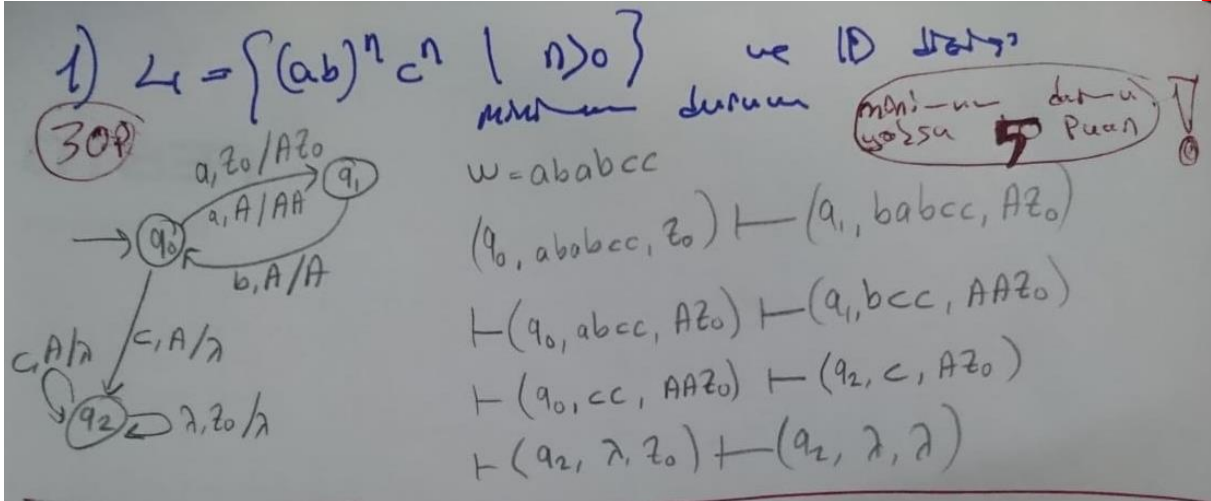 1) L = {(ab)ⁿ cⁿ | n>0} ve ID
minimum durum
minimum durum
yoksa 5 Puan !
30P
a, Z₀/AZ₀
a, A/AA
q₁
q₀
b, A/A
c, A/λ
c, A/λ
q₂
λ, Z₀/λ
w = ababcc
(q₀, ababcc, Z₀) ⊢ (q₁, babcc, AZ₀)
⊢ (q₀, abcc, AZ₀) ⊢ (q₁, bcc, AAZ₀)
⊢ (q₀, cc, AAZ₀) ⊢ (q₂, c, AZ₀)
⊢ (q₂, λ, Z₀) ⊢ (q₂, λ, λ)